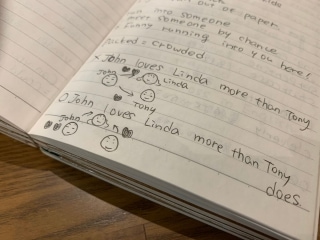 out of paper
run into someone
meet someone by chance
Funny running into you here!
packed = crowded
× John loves Linda more than Tony
John Linda
Tony
○ John loves Linda more than Tony
does
John